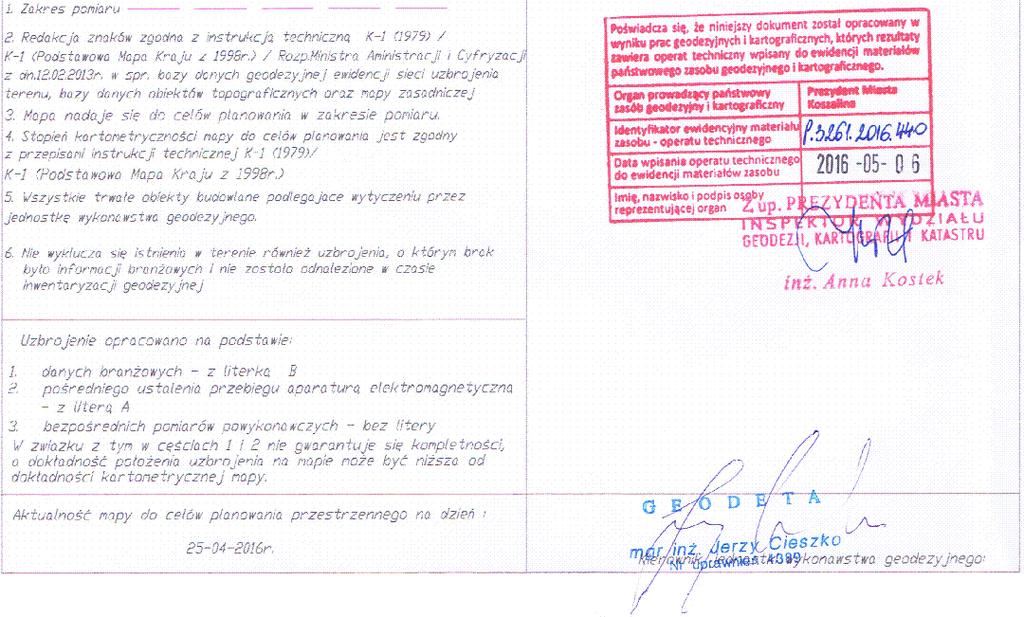 1. Zakres pomiaru
2. Redakcja znaków zgodna z instrukcją techniczną K-1 (1979) /
K-1 (Podstawowa Mapa Kraju z 1998r.) / Rozp.Ministra Aministracji i Cyfryzacji
z dn.12.02.2013r. w spr. bazy danych geodezyjnej ewidencji sieci uzbrojenia
terenu, bazy danych obiektów topograficznych oraz mapy zasadniczej
3. Mapa nadaje się do celów planowania w zakresie pomiaru.
4. Stopień kartometryczności mapy do celów planowania jest zgodny
z przepisami instrukcji technicznej K-1 (1979)/
K-1 (Podstawowa Mapa Kraju z 1998r.)
5. Wszystkie trwałe obiekty budowlane podlegające wytyczeniu przez
jednostkę wykonawstwa geodezyjnego.
6. Nie wyklucza się istnienia w terenie również uzbrojenia, o którym brak
było informacji branżowych i nie zostało odnalezione w czasie
inwentaryzacji geodezyjnej
Uzbrojenie opracowano na podstawie:
1. danych branżowych - z literką B
2. pośredniego ustalenia przebiegu aparaturą elektromagnetyczną
- z literą A
3. bezpośrednich pomiarów powykonawczych - bez litery
W związku z tym w cęściach 1 i 2 nie gwarantuje się kompletności,
a dokładność położenia uzbrojenia na mapie może być niższa od
dokładności kartometrycznej mapy.
Aktualność mapy do celów planowania przestrzennego na dzień :
25-04-2016r.
Poświadcza się, że niniejszy dokument został opracowany w
wyniku prac geodezyjnych i kartograficznych, których rezultaty
zawiera operat techniczny wpisany do ewidencji materiałów
państwowego zasobu geodezyjnego i kartograficznego.
Organ prowadzący państwowy
zasób geodezyjny i kartograficzny
Prezydent Miasta
Koszalina
Identyfikator ewidencyjny materiału
zasobu - operatu technicznego
P.3261.2016.440
Data wpisania operatu technicznego
do ewidencji materiałów zasobu
2016 -05- 06
Imię, nazwisko i podpis osoby
reprezentującej organ
Z up. PREZYDENTA MIASTA
INSPEKTOR WYDZIAŁU
GEODEZJI, KARTOGRAFII I KATASTRU
inż. Anna Kostek
GEODETA
mgr inż. Jerzy Cieszko
Nr uprawnień 4389
Kierownik jednostki wykonawstwa geodezyjnego: